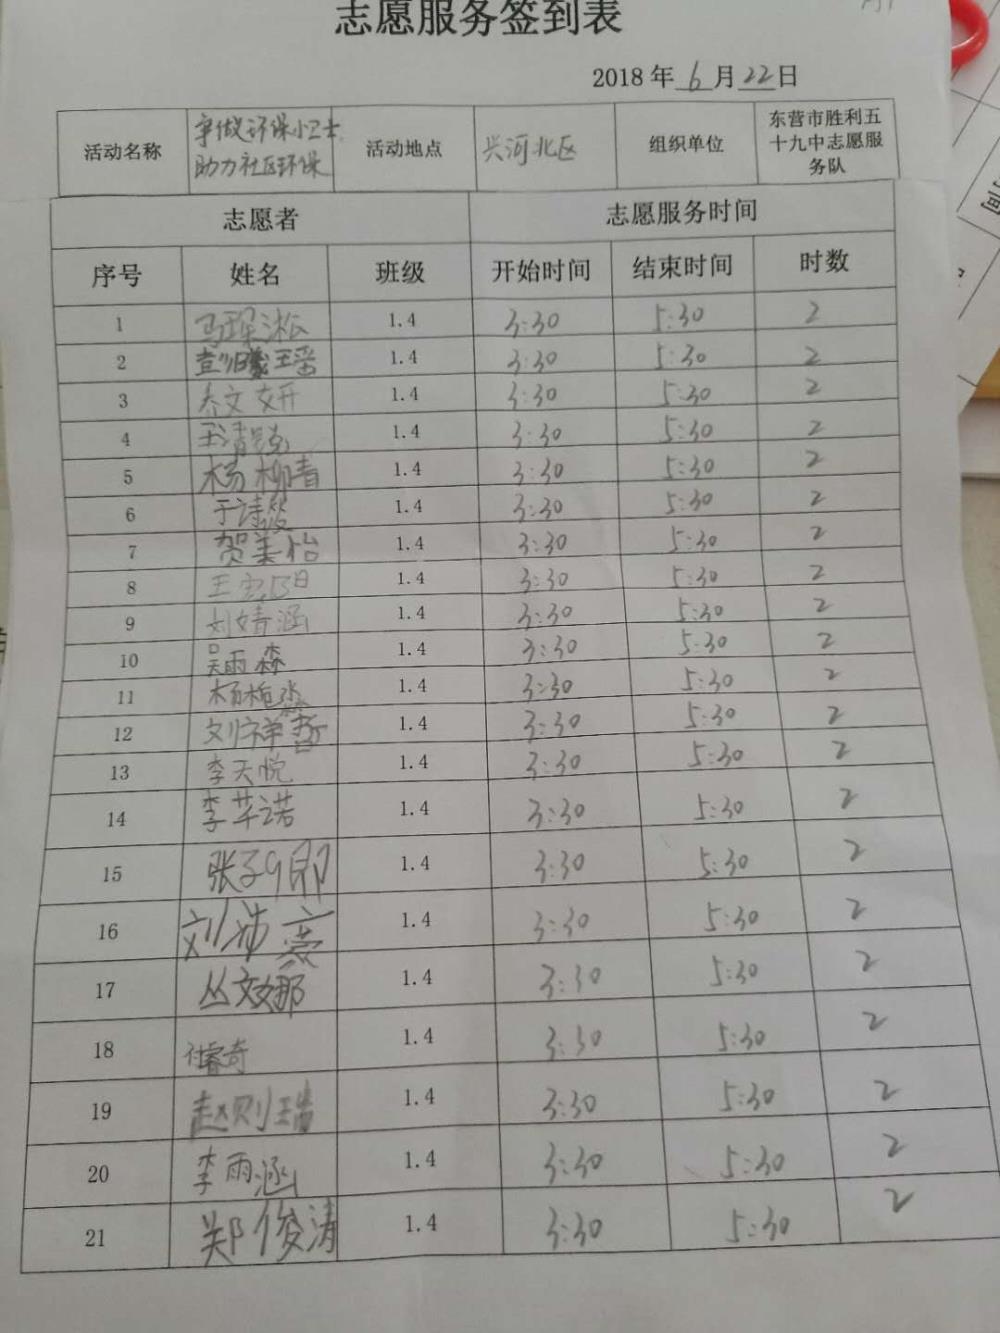 志愿服务签到表
2018 年 6 月 22 日
活动名称 争做环保小卫士 助力社区环保 活动地点 兴河北区 组织单位 东营市胜利五十九中志愿服务队
志愿者 志愿服务时间
序号 姓名 班级 开始时间 结束时间 时数
1 马琛淞 1.4 3:30 5:30 2
2 1.4 3:30 5:30 2
3 乔文妍 1.4 3:30 5:30 2
4 1.4 3:30 5:30 2
5 杨柳青 1.4 3:30 5:30 2
6 1.4 3:30 5:30 2
7 贺美怡 1.4 3:30 5:30 2
8 1.4 3:30 5:30 2
9 刘婧涵 1.4 3:30 5:30 2
10 吴雨森 1.4 3:30 5:30 2
11 1.4 3:30 5:30 2
12 刘祥哲 1.4 3:30 5:30 2
13 李天悦 1.4 3:30 5:30 2
14 李芊诺 1.4 3:30 5:30 2
15 1.4 3:30 5:30 2
16 刘沛豪 1.4 3:30 5:30 2
17 丛文娜 1.4 3:30 5:30 2
18 杜睿奇 1.4 3:30 5:30 2
19 赵则瑞 1.4 3:30 5:30 2
20 李雨涵 1.4 3:30 5:30 2
21 郑俊涛 1.4 3:30 5:30 2